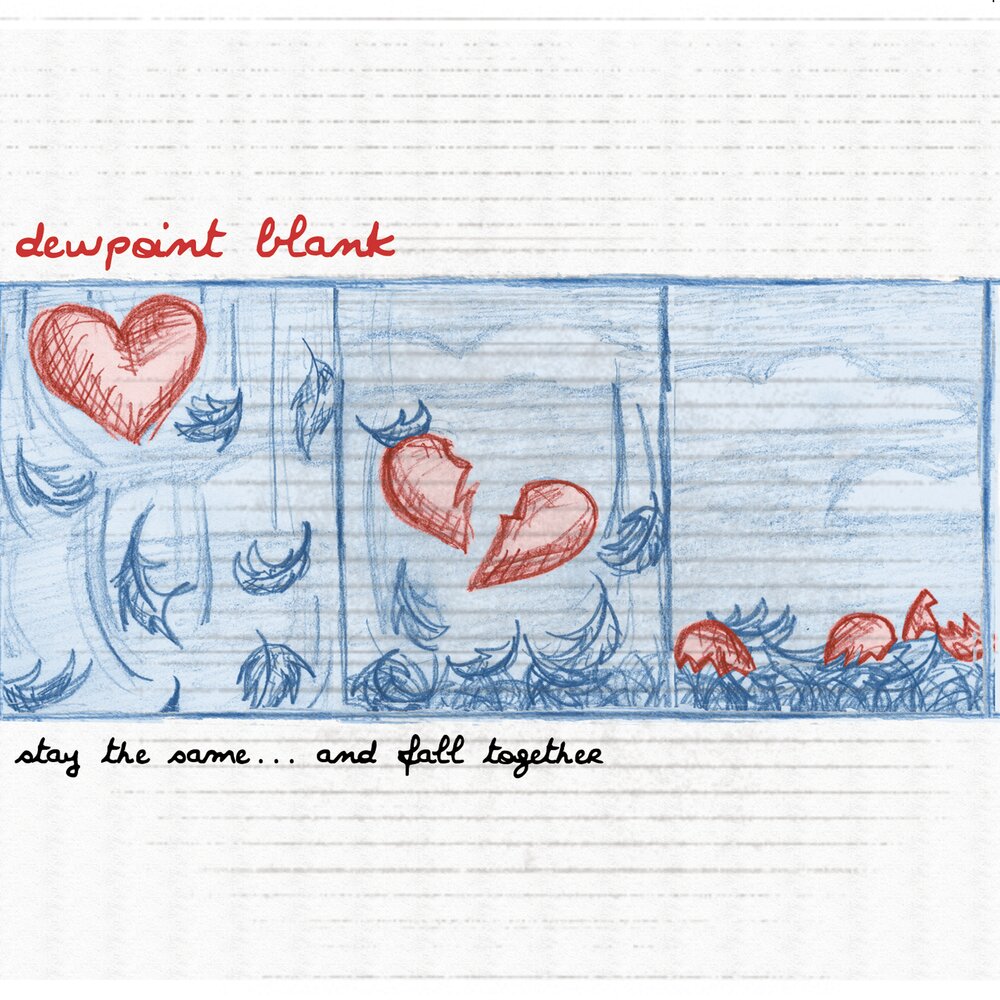 dewpoint blank
stay the same... and fall together